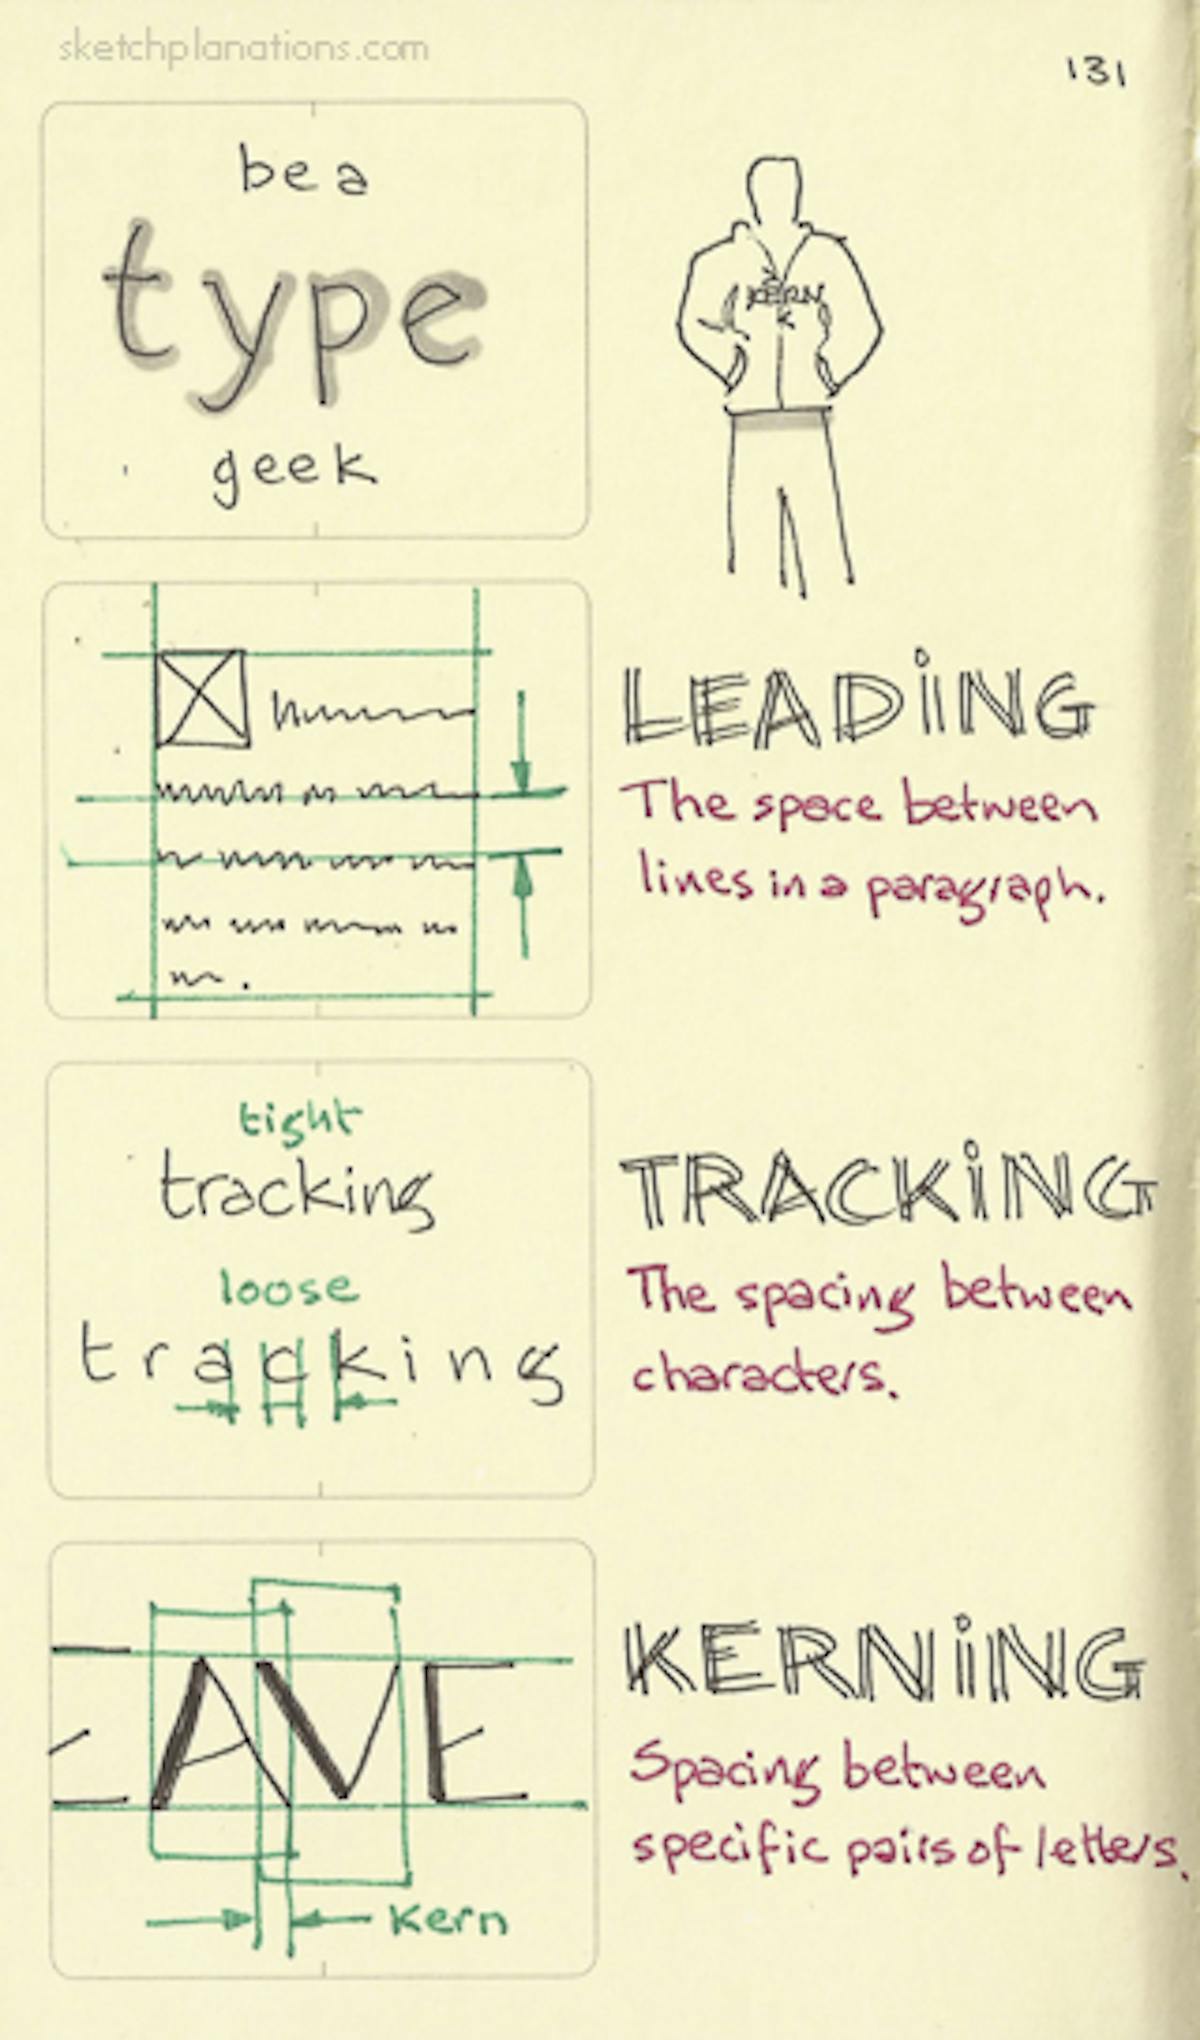 sketchplanations.com
131
be a
type
geek
KERN
K
LEADiNG
The space between
lines in a paragraph.
tight
tracking
loose
tracking
TRACKiNG
The spacing between
characters.
AVE
Kern
KERNiNG
Spacing between
specific pairs of letters.